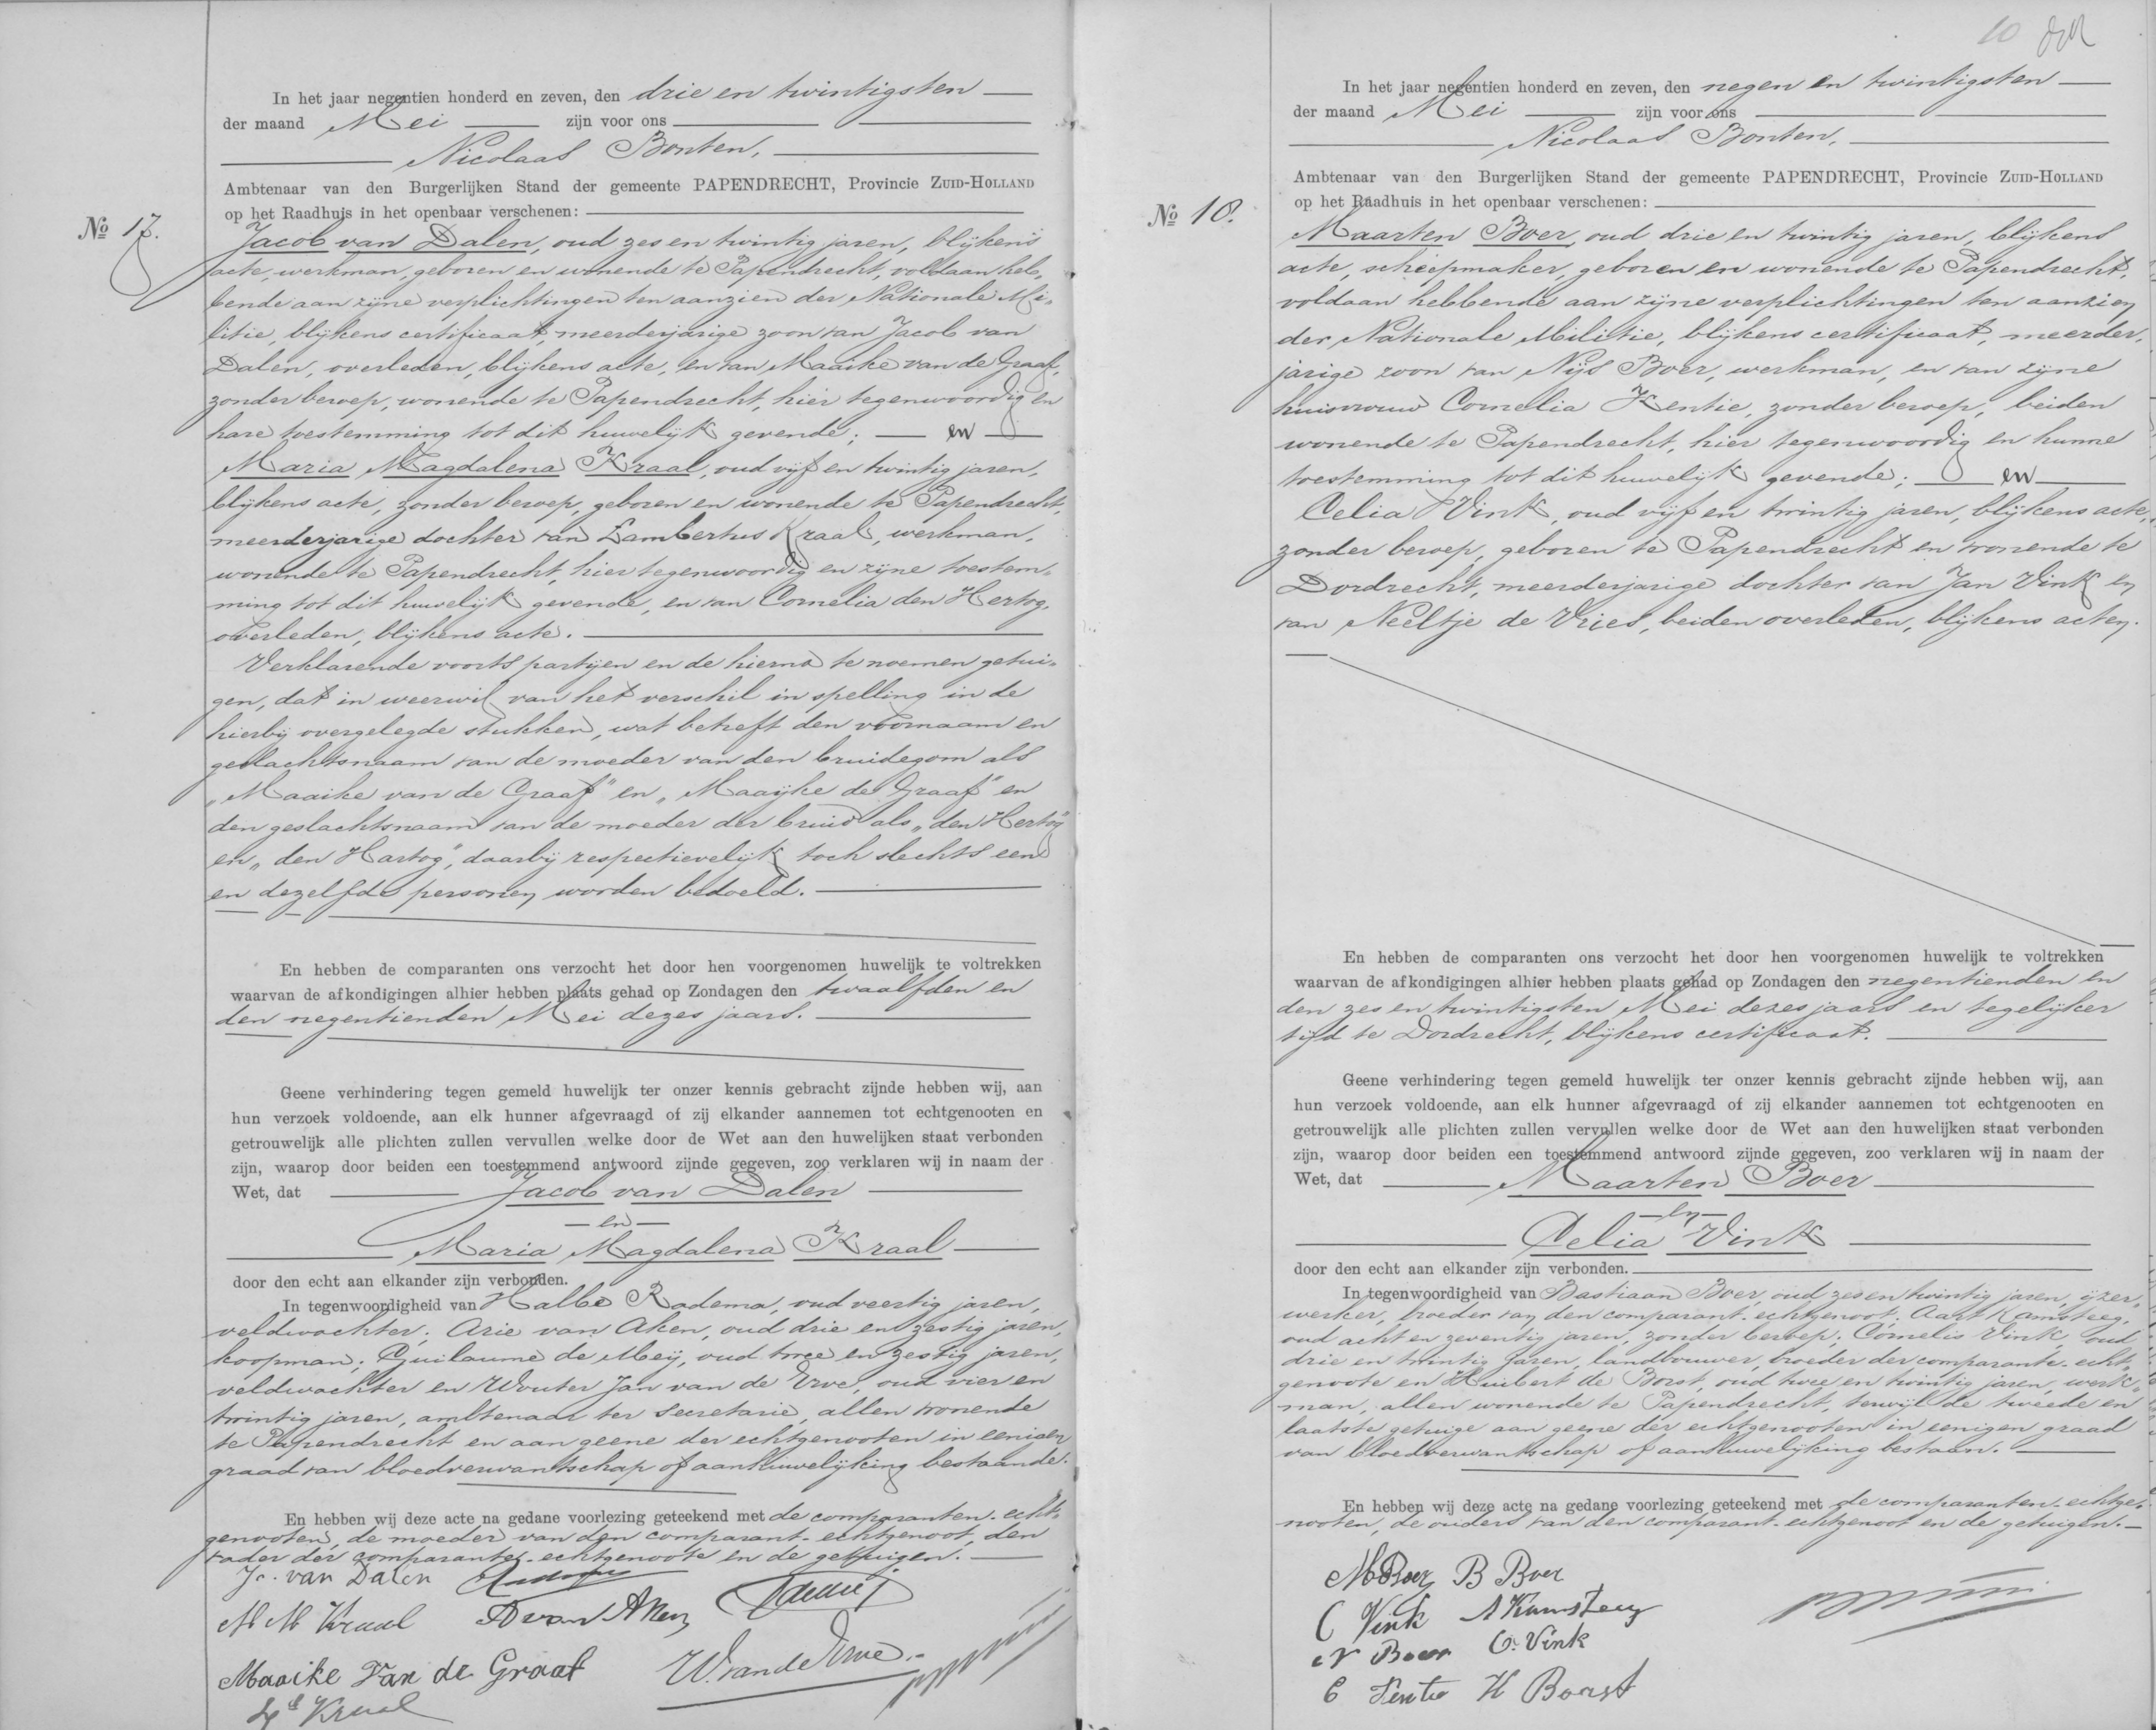 In het jaar negentien honderd en zeven, den drie en twintigsten
der maand Mei zijn voor ons
Nicolaas Bonten,
Ambtenaar van den Burgerlijken Stand der gemeente PAPENDRECHT, Provincie ZUID-HOLLAND
op het Raadhuis in het openbaar verschenen:
No 17.
Jacob van Dalen, oud zes en twintig jaren, blijkens
acte, werkman, geboren en wonende te Papendrecht, voldaan heb„
bende aan zijne verplichtingen ten aanzien der Nationale Mi„
litie, blijkens certificaat, meerderjarige zoon van Jacob van
Dalen, overleden, blijkens acte, en van Maaike van de Graaf,
zonder beroep, wonende te Papendrecht, hier tegenwoordig en
hare toestemming tot dit huwelijk gevende; en
Maria Magdalena Kraal, oud vijf en twintig jaren,
blijkens acte, zonder beroep, geboren en wonende te Papendrecht,
meerderjarige dochter van Lambertus Kraal, werkman,
wonende te Papendrecht, hier tegenwoordig en zijne toestem„
ming tot dit huwelijk gevende, en van Cornelia den Hertog,
overleden, blijkens acte.
Verklarende voorts partijen en de hierna te noemen getui„
gen, dat in weerwil van het verschil in spelling in de
hierbij overgelegde stukken, wat betreft den voornaam en
geslachtsnaam van de moeder van den bruidegom als
„Maaike van de Graaf" en „Maaijke de Graaf" en
den geslachtsnaam van de moeder der bruid als „den Hertog"
en „den Hartog", daarbij respectievelijk toch slechts een
en dezelfde personen worden bedoeld.
En hebben de comparanten ons verzocht het door hen voorgenomen huwelijk te voltrekken
waarvan de afkondigingen alhier hebben plaats gehad op Zondagen den twaalfden en
den negentienden Mei dezes jaars.
Geene verhindering tegen gemeld huwelijk ter onzer kennis gebracht zijnde hebben wij, aan
hun verzoek voldoende, aan elk hunner afgevraagd of zij elkander aannemen tot echtgenooten en
getrouwelijk alle plichten zullen vervullen welke door de Wet aan den huwelijken staat verbonden
zijn, waarop door beiden een toestemmend antwoord zijnde gegeven, zoo verklaren wij in naam der
Wet, dat Jacob van Dalen
en
Maria Magdalena Kraal
door den echt aan elkander zijn verbonden.
In tegenwoordigheid van Halbe Radema, oud veertig jaren,
veldwachter; Arie van Aken, oud drie en zestig jaren,
koopman; Guilaume de Meij, oud twee en zestig jaren,
veldwachter en Wouter Jan van de Erve, oud vier en
twintig jaren, ambtenaar ter secretarie, allen wonende
te Papendrecht en aan geene der echtgenooten in eenigen
graad van bloedverwantschap of aanhuwelijking bestaande.
En hebben wij deze acte na gedane voorlezing geteekend met de comparanten-echt„
genooten, de moeder van den comparant-echtgenoot, den
vader der comparante-echtgenoote en de getuigen.
Jc. van Dalen
M M Kraal A van Aken
Maaike Van de Graaf W. van de Erve.
Ls Kraal
10
In het jaar negentien honderd en zeven, den negen en twintigsten
der maand Mei zijn voor ons
Nicolaas Bonten,
Ambtenaar van den Burgerlijken Stand der gemeente PAPENDRECHT, Provincie ZUID-HOLLAND
op het Raadhuis in het openbaar verschenen:
No 18.
Maarten Boer, oud drie en twintig jaren, blijkens
acte, scheepmaker, geboren en wonende te Papendrecht,
voldaan hebbende aan zijne verplichtingen ten aanzien
der Nationale Militie, blijkens certificaat, meerder„
jarige zoon van Nijs Boer, werkman, en van zijne
huisvrouw Cornelia Kentie, zonder beroep, beiden
wonende te Papendrecht, hier tegenwoordig en hunne
toestemming tot dit huwelijk gevende; en
Celia Vink, oud vijf en twintig jaren, blijkens acte,
zonder beroep, geboren te Papendrecht en wonende te
Dordrecht, meerderjarige dochter van Jan Vink en
van Neeltje de Vries, beiden overleden, blijkens acten.
En hebben de comparanten ons verzocht het door hen voorgenomen huwelijk te voltrekken
waarvan de afkondigingen alhier hebben plaats gehad op Zondagen den negentienden en
den zes en twintigsten Mei dezes jaars en tegelijker
tijd te Dordrecht, blijkens certificaat.
Geene verhindering tegen gemeld huwelijk ter onzer kennis gebracht zijnde hebben wij, aan
hun verzoek voldoende, aan elk hunner afgevraagd of zij elkander aannemen tot echtgenooten en
getrouwelijk alle plichten zullen vervullen welke door de Wet aan den huwelijken staat verbonden
zijn, waarop door beiden een toestemmend antwoord zijnde gegeven, zoo verklaren wij in naam der
Wet, dat Maarten Boer
en
Celia Vink
door den echt aan elkander zijn verbonden.
In tegenwoordigheid van Bastiaan Boer, oud zes en twintig jaren, ijzer„
werker, broeder van den comparant-echtgenoot; Aart Kamsteeg,
oud acht en zeventig jaren, zonder beroep; Cornelis Vink, oud
drie en twintig jaren, landbouwer, broeder der comparante-echt„
genoote en Huibert de Borst, oud twee en twintig jaren, werk„
man, allen wonende te Papendrecht, terwijl de tweede en
laatste getuige aan geene der echtgenooten in eenigen graad
van bloedverwantschap of aanhuwelijking bestaan.
En hebben wij deze acte na gedane voorlezing geteekend met de comparanten-echtge„
nooten, de ouders van den comparant-echtgenoot en de getuigen.
M Boer B Boer
C Vink A Kamsteeg
N Boer C. Vink
C Kentie H Borst